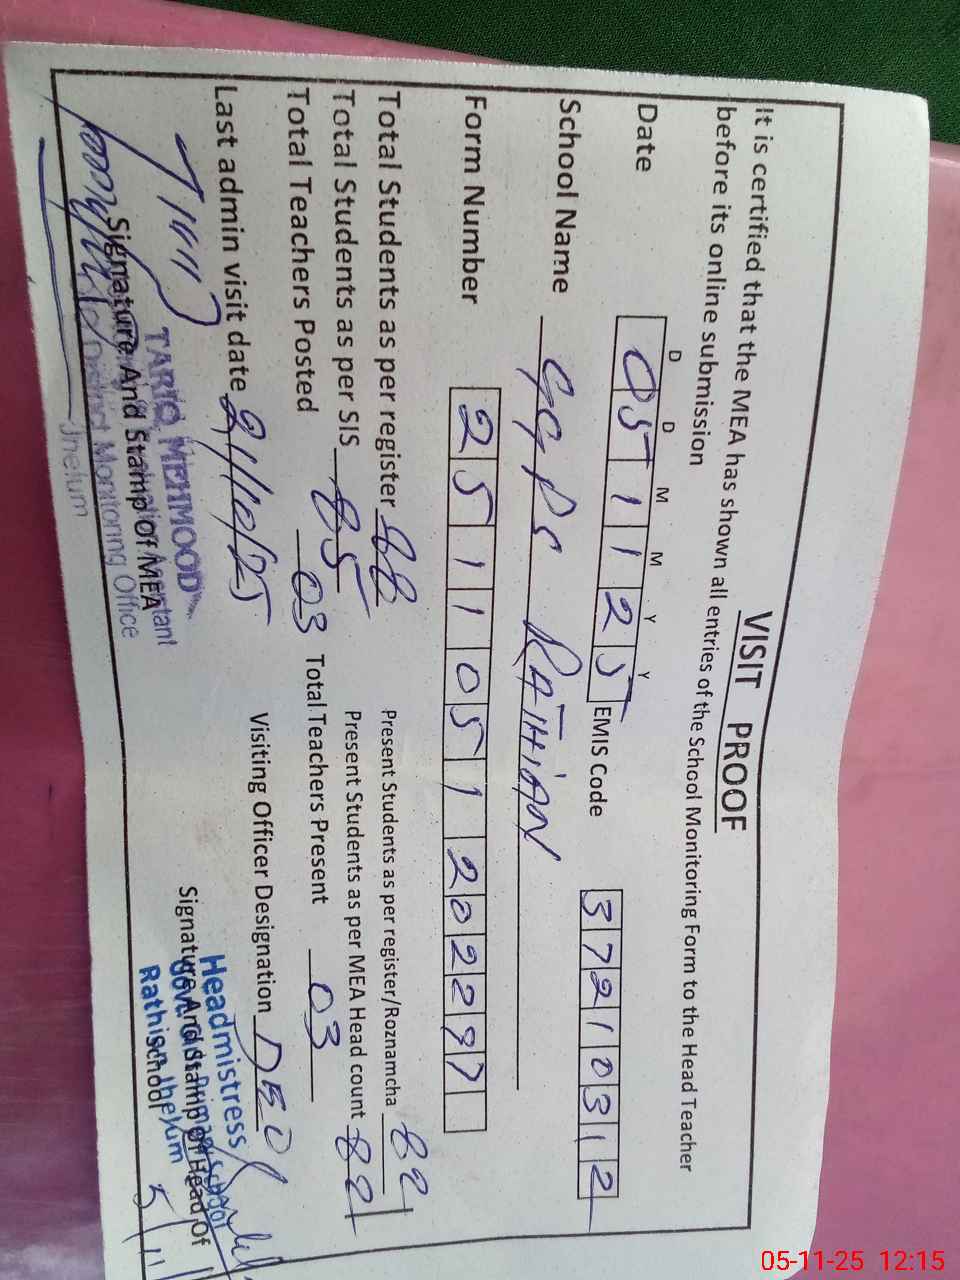 VISIT PROOF
It is certified that the MEA has shown all entries of the School Monitoring Form to the Head Teacher
before its online submission
D D M M Y Y
Date 05 11 25 EMIS Code 37210312
School Name GGPS RATHIAN
Form Number 2511051202297
Total Students as per register 88 Present Students as per register/Roznamcha 82
Total Students as per SIS 85 Present Students as per MEA Head count 82
Total Teachers Posted 03 Total Teachers Present 03
Last admin visit date 21/10/25 Visiting Officer Designation DEO
TARIQ MEHMOOD
Signature And Stamp Of MEA
District Monitoring Office
Jhelum
Headmistress
Govt. Girls Primary School
Signature And Stamp Of Head Of
school
Rathian Jhelum
5/11
05-11-25 12:15